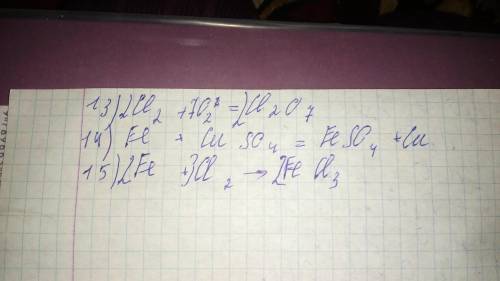 13) 2Cl₂ + 7O₂ = 2Cl₂O₇
14) Fe + CuSO₄ = FeSO₄ + Cu
15) 2Fe + 3Cl₂ → 2FeCl₃